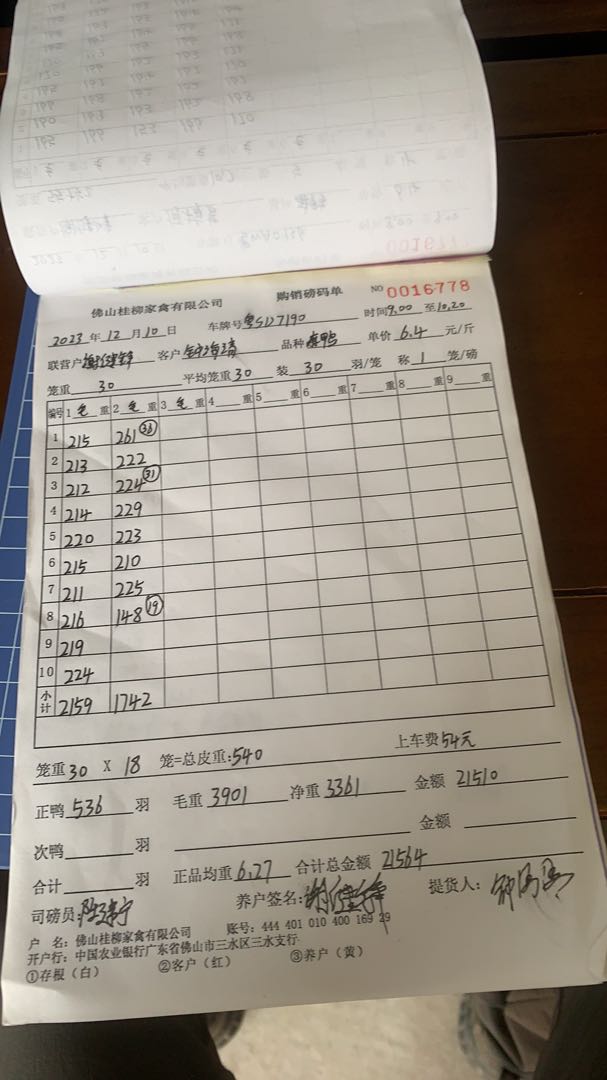 佛山桂柳家禽有限公司 购销磅码单 NO 0016778
2023 年 12 月 10 日 车牌号 粤SD7190 时间 9.00 至 10.20
联营户 客户 品种 单价 6.4 元/斤
笼重 30 平均笼重 30 装 30 羽/笼 称 1 笼/磅
编号 1 毛 重 2 毛 重 3 毛 重 4 重 5 重 6 重 7 重 8 重 9 重
1 215 261 (36)
2 213 222
3 212 224 (31)
4 214 229
5 220 223
6 215 210
7 211 225
8 216 148 (19)
9 219
10 224
小计 2159 1742
笼重 30 X 18 笼=总皮重: 540 上车费 54元
正鸭 536 羽 毛重 3901 净重 3361 金额 21510
次鸭 羽 金额
合计 羽 正品均重 6.27 合计总金额 21564
司磅员: 养户签名: 提货人:
户 名: 佛山桂柳家禽有限公司 账号: 444 401 010 400 169 29
开户行: 中国农业银行广东省佛山市三水区三水支行
①存根（白） ②客户（红） ③养户（黄）